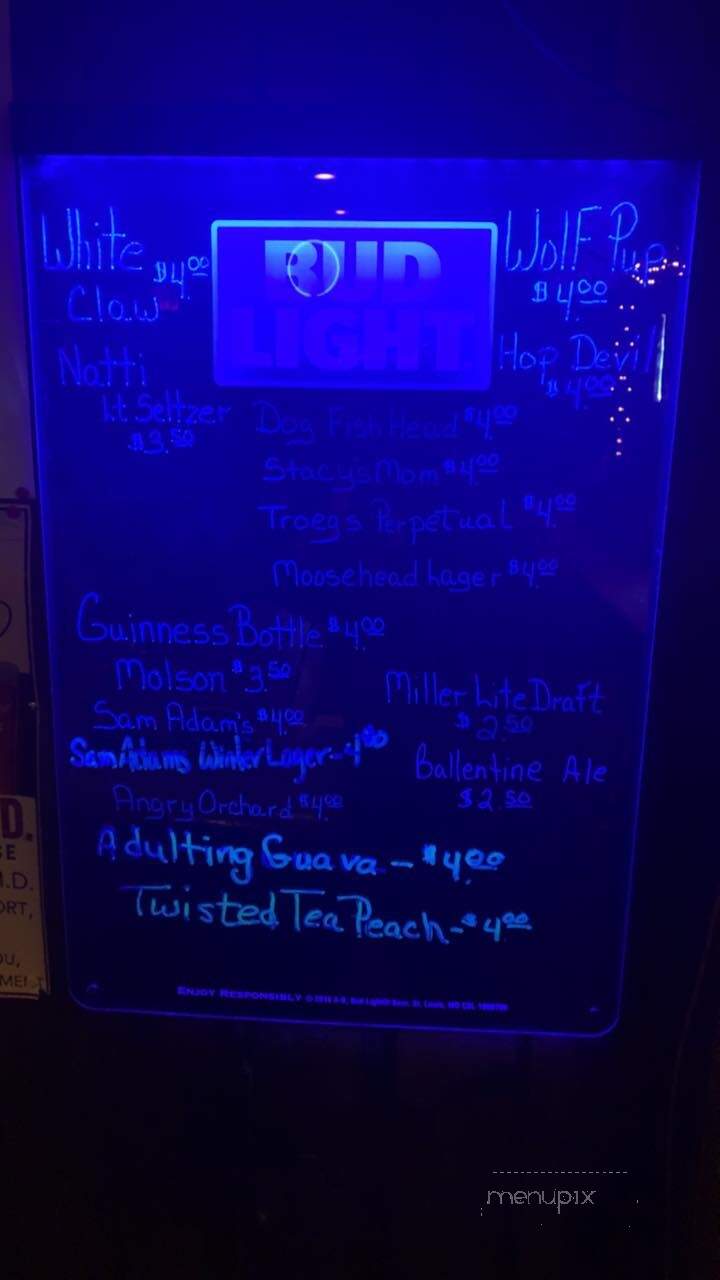 White $4.00
Claw
BUD
LIGHT
Wolf Pup
$4.00
Natti
Lt Seltzer
$3.50
Hop Devil
$4.00
Dog Fish Head $4.00
Stacy's Mom $4.00
Troegs Perpetual $4.00
Moosehead Lager $4.00
Guinness Bottle $4.00
Molson $3.50
Sam Adam's $4.00
Sam Adams Winter Lager-4.00
Angry Orchard $4.00
Miller Lite Draft
$2.50
Ballentine Ale
$2.50
Adulting Guava - $4.00
Twisted Tea Peach - $4.00
ENJOY RESPONSIBLY
D.
SE
I.D.
ORT,
OU,
ME!
menupix